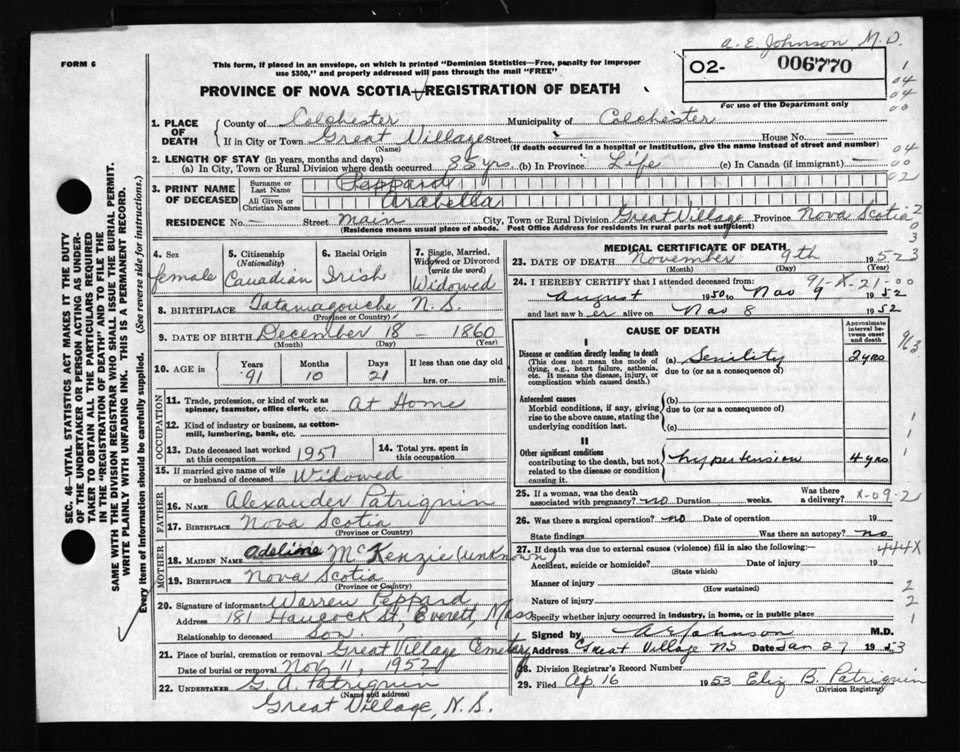 A. E. Johnson, M.D.
FORM 6
This form, if placed in an envelope, on which is printed "Dominion Statistics—Free, penalty for improper
use $300," and properly addressed will pass through the mail "FREE"
02- 006770
For use of the Department only
PROVINCE OF NOVA SCOTIA—REGISTRATION OF DEATH
1. PLACE OF DEATH
County of Colchester Municipality of Colchester
If in City or Town Great Village Street — House No. —
(Name) (If death occurred in a hospital or institution, give the name instead of street and number)
2. LENGTH OF STAY (in years, months and days)
(a) In City, Town or Rural Division where death occurred 85 yrs. (b) In Province Life (c) In Canada (if immigrant) —
3. PRINT NAME OF DECEASED
Surname or Last Name Peppard
All Given or Christian Names Arabella
RESIDENCE No. — Street Main City, Town or Rural Division Great Village Province Nova Scotia
(Residence means usual place of abode. Post Office Address for residents in rural parts not sufficient)
4. Sex
female
5. Citizenship
(Nationality)
Canadian
6. Racial Origin
Irish
7. Single, Married, Widowed or Divorced
(write the word)
Widowed
8. BIRTHPLACE Tatamagouche N.S.
(Province or Country)
9. DATE OF BIRTH December 18 — 1860
(Month) (Day) (Year)
10. AGE in
Years Months Days If less than one day old
91 10 21 hrs. or min.
OCCUPATION
11. Trade, profession, or kind of work as
spinner, teamster, office clerk, etc. At Home
12. Kind of industry or business, as cotton-
mill, lumbering, bank, etc.
13. Date deceased last worked
at this occupation 1951
14. Total yrs. spent in
this occupation
15. If married give name of wife
or husband of deceased Widowed
FATHER
16. NAME Alexander Patriquin
17. BIRTHPLACE Nova Scotia
(Province or Country)
MOTHER
18. MAIDEN NAME Adeline McKenzie (unknown)
19. BIRTHPLACE Nova Scotia
(Province or Country)
20. Signature of informant Warren Peppard
Address 181 Hancock St, Everett, Mass
Relationship to deceased Son
21. Place of burial, cremation or removal Great Village Cemetery
Date of burial or removal Nov 11, 1952
22. UNDERTAKER G. A. Patriquin
(Name and address)
Great Village, N.S.
MEDICAL CERTIFICATE OF DEATH
23. DATE OF DEATH November 9th 1952
(Month) (Day) (Year)
24. I HEREBY CERTIFY that I attended deceased from:
96-X-21-00
August 1950 to Nov 9 1952
and last saw her alive on Nov 8 1952
CAUSE OF DEATH
Approximate interval between onset and death
I
Disease or condition directly leading to death (a) Senility 2 yrs
(This does not mean the mode of dying, e.g., heart failure, asthenia, etc. It means the disease, injury, or complication which caused death.)
due to (or as a consequence of)
Antecedent causes (b)
Morbid conditions, if any, giving rise to the above cause, stating the underlying condition last.
due to (or as a consequence of)
(c)
II
Other significant conditions
contributing to the death, but not related to the disease or condition causing it.
hypertension 4 yrs
25. If a woman, was the death
associated with pregnancy? no Duration weeks. Was there a delivery? X-09-2
26. Was there a surgical operation? no Date of operation 19
State findings Was there an autopsy? no
27. If death was due to external causes (violence) fill in also the following:— 444X
Accident, suicide or homicide? Date of injury 19
(State which)
Manner of injury
(How sustained)
Nature of injury
Specify whether injury occurred in industry, in home, or in public place
Signed by A E Johnson M.D.
Address Great Village NS Date Jan 27 1953
28. Division Registrar's Record Number
29. Filed Ap 16 1953 Eliz B. Patriquin
(Division Registrar)
SEC. 46—VITAL STATISTICS ACT MAKES IT THE DUTY
OF THE UNDERTAKER OR PERSON ACTING AS UNDER-
TAKER TO OBTAIN ALL THE PARTICULARS REQUIRED
IN THE "REGISTRATION OF DEATH" AND TO FILE THE
SAME WITH THE DIVISION REGISTRAR WHO SHALL ISSUE THE BURIAL PERMIT.
WRITE PLAINLY WITH UNFADING INK. THIS IS A PERMANENT RECORD.
Every item of information should be carefully supplied. (See reverse side for instructions.)